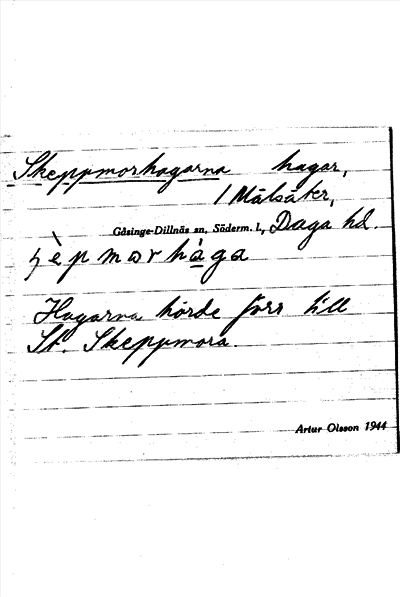 Skeppmorhagarna hagar,
/ Målsäter,
Gåsinge-Dillnäs sn, Söderm. l., Daga hd.
ʂèpmorhàga
Hagarna hörde förr till
St. Skeppmora.
Artur Olsson 1944